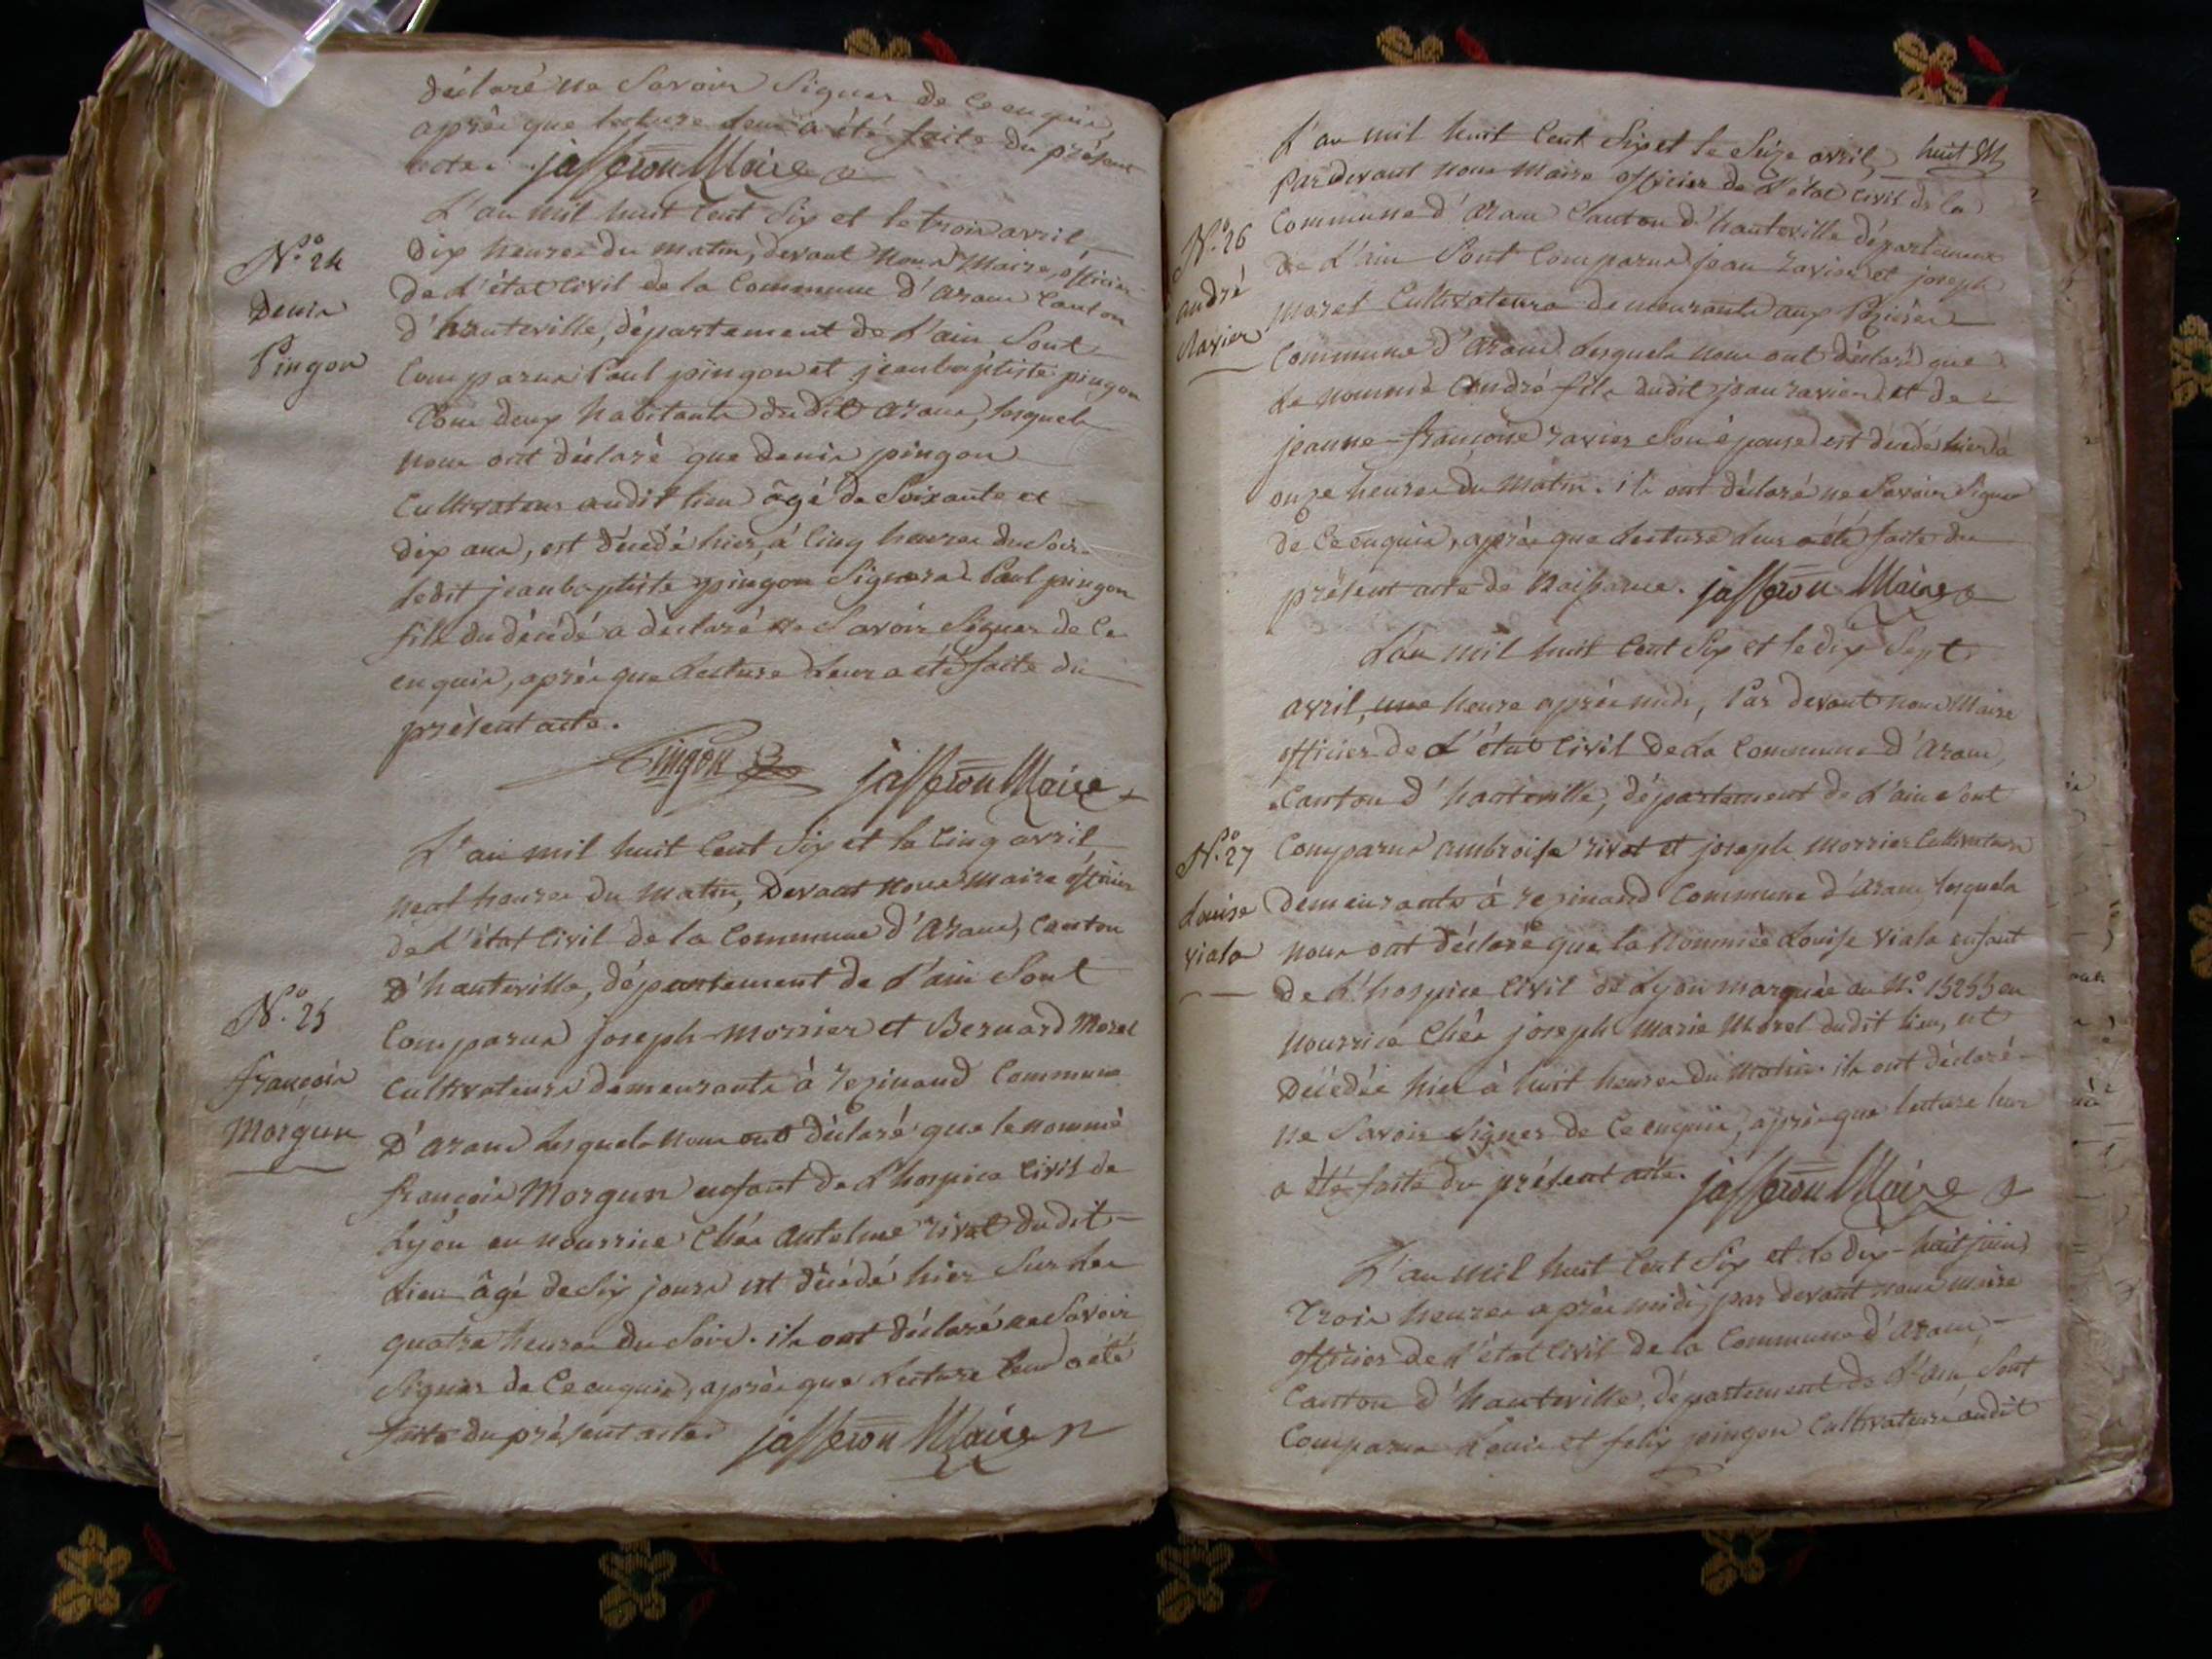 déclaré ne Savoir Signer de Ce enquis,
après que lecture leur a été faite du présent
acte. jasseron Maire
L'an mil huit Cent Six et le trois avril
Dix heures du matin, devant Nous Maire, officier
N.o 24
Denis
Pingon
De L'état Civil de la Commune d'aranc Canton
d'hauteville, département de L'ain Sont
Comparus Paul pingon et jean baptiste pingon
Tous deux habitants dudit aranc, lesquels
nous ont déclaré que denis pingon
Cultivateur audit lieu âgé de Soixante et
dix ans, est décédé hier, à Cinq heures du Soir.
Ledit jean baptiste pingon Signera Paul pingon
fils du décédé a déclaré ne Savoir Signer de Ce
enquis, après que Lecture Leur a été faite du
présent acte.
Pingon jasseron Maire
L'an mil huit Cent Six et le Cinq avril
neuf heures du Matin, Devant Nous Maire officier
de L'état Civil de la Commune d'aranc, Canton
D'hauteville, département de L'ain Sont
N.o 25
françois
Morgun
Comparus joseph-morrier et Bernard Morel
Cultivateurs demeurants à rezinand Commune
D'aranc Lesquels nous ont déclaré que le nommé
françois Morgun enfant de L'hospice Civil de
Lyon en nourrice Chés antelme rivet dudit
Lieu âgé de Six jours est décédé hier Sur Les
quatre heures du Soir. ils ont déclaré ne Savoir
Signer de Ce enquis, après que Lecture Leur a été
faite du présent acte. jasseron Maire
L'an mil huit Cent Six et le Seize avril, huit
Par devant nous maire officier de L'état Civil de la
N.o 26
andré
Ravier
Commune d'aranc Canton d'hauteville département
De L'ain Sont Comparus jean ravier et joseph
moret Cultivateurs demeurants aux
Commune d'aranc Lesquels nous ont déclaré que
Le nommé andré fils dudit jean ravier et de
jeanne-françoise ravier Son épouse est décédé hier à
onze heures du matin. ils ont déclaré ne Savoir Signer
de Ce enquis, après que Lecture Leur a été faite du
présent acte de Naissance. jasseron Maire
L'an mil huit Cent Six et le dix Sept
avril, une heure après midi, Par devant nous Maire
officier de L'état Civil de La Commune d'aranc,
Canton d'hauteville, département de L'ain Sont
N.o 27
Louise
viala
Comparus ambroise rivet et joseph morrier Cultivateurs
Demeurants à rezinand Commune d'aranc, lesquels
nous ont déclaré que la nommée Louise viala enfant
de L'hospice Civil de Lyon marquée au N.o 15255 en
nourrice Chés joseph marie Morel dudit lieu, est
Décédée hier à huit heures du Matin. ils ont déclaré
ne Savoir Signer de Ce enquis, après que lecture leur
a été faite du présent acte. jasseron Maire
L'an mil huit Cent Six et le dix-huit juin
Trois heures après midi, par devant nous maire
officier de L'état Civil de la Commune d'aranc,
Canton d'hauteville, département de L'ain Sont
Comparus Louis et felix pingon Cultivateurs audit